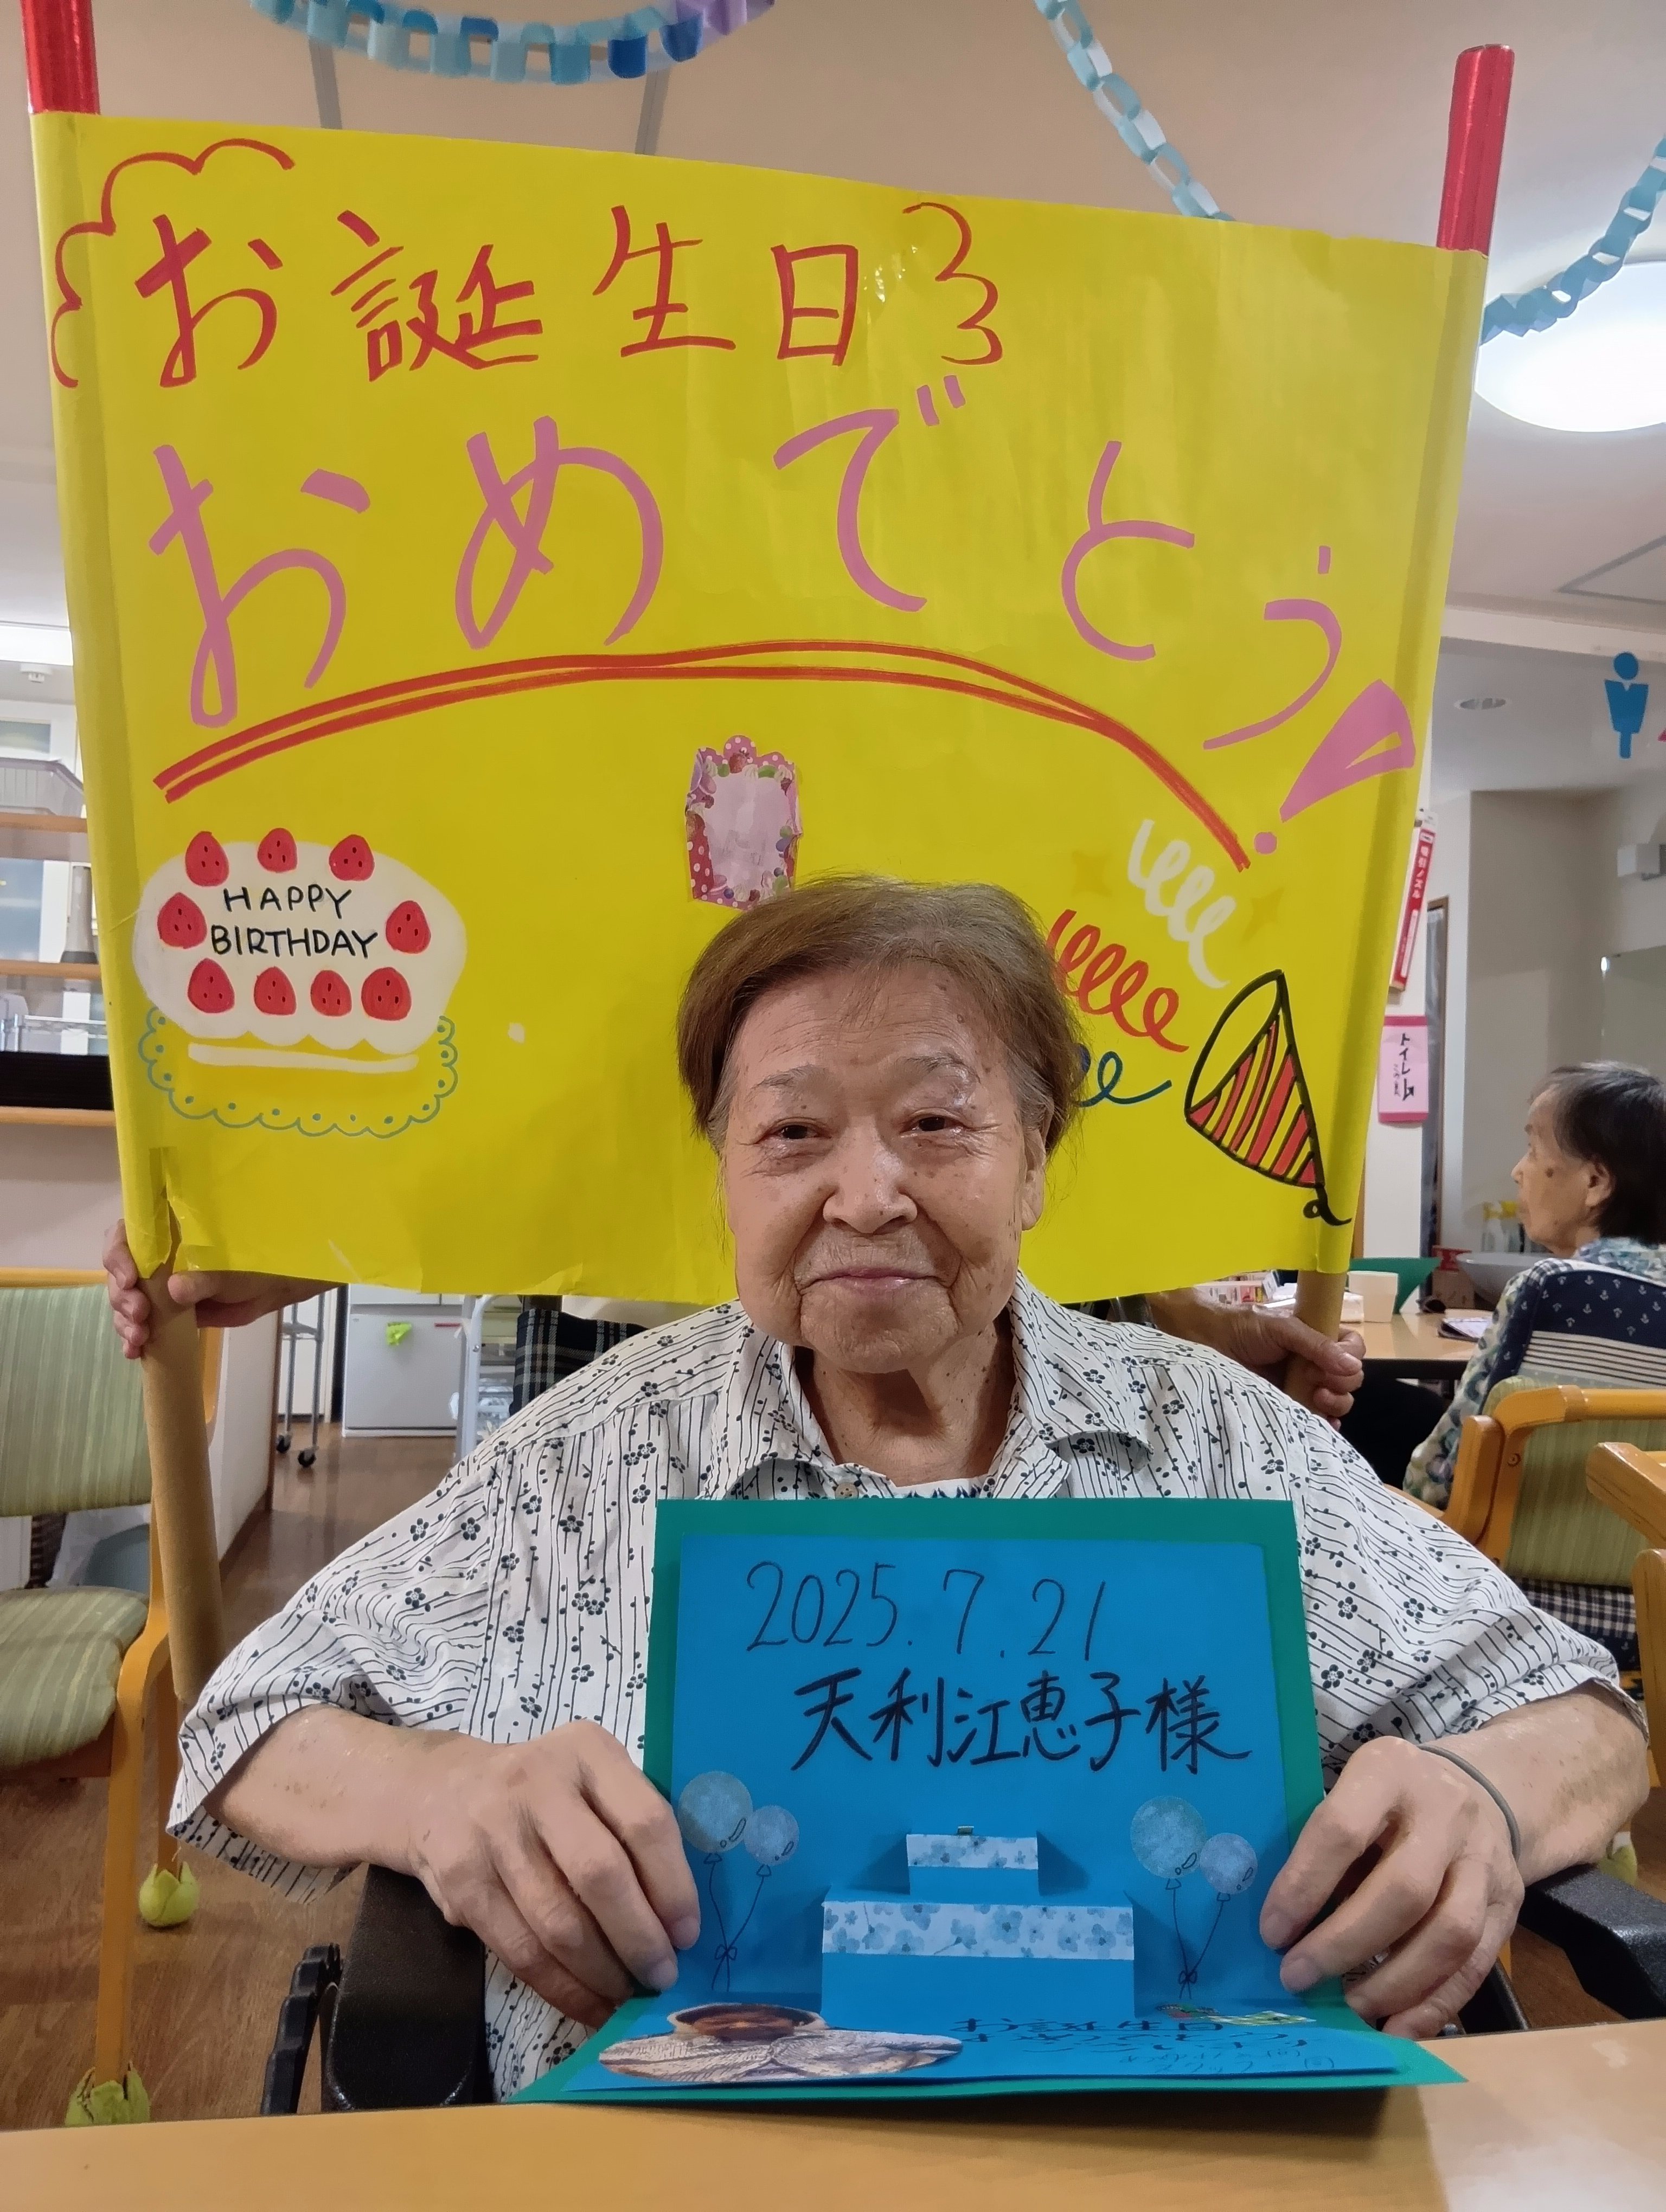 お誕生日
おめでとう!
HAPPY
BIRTHDAY
トイレ
2025.7.21
天利江恵子様
お誕生日
おめでとう